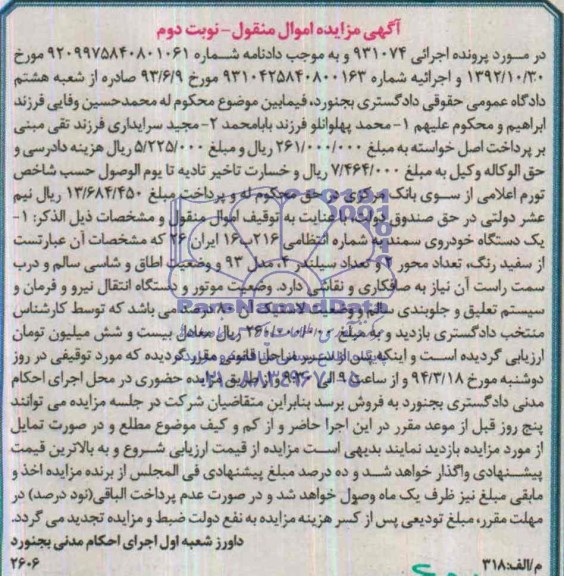 آگهی مزایده اموال منقول - نوبت دوم
در مورد پرونده اجرائی ۹۳۱۰۷۴ و به موجب دادنامه شماره ۹۲۰۹۹۷۵۸۴۰۸۰۱۰۶۱ مورخ
۱۳۹۲/۱۰/۳۰ و اجرائیه شماره ۹۳۱۰۴۲۵۸۴۰۸۰۰۱۶۳ مورخ ۹۳/۶/۹ صادره از شعبه هشتم
دادگاه عمومی حقوقی دادگستری بجنورد، فیمابین موضوع محکوم له محمدحسین وفایی فرزند
ابراهیم و محکوم علیهم ۱- محمد پهلوانلو فرزند بابامحمد ۲- مجید سرایداری فرزند تقی مبنی
بر پرداخت اصل خواسته به مبلغ ۲۶۱/۰۰۰/۰۰۰ ریال و مبلغ ۵/۲۲۵/۰۰۰ ریال هزینه دادرسی و
حق الوکاله وکیل به مبلغ ۷/۴۶۴/۰۰۰ ریال و خسارت تاخیر تادیه تا یوم الوصول حسب شاخص
تورم اعلامی از سوی بانک مرکزی در حق محکوم له و پرداخت مبلغ ۱۳/۶۸۴/۴۵۰ ریال نیم
عشر دولتی در حق صندوق دولت، با عنایت به توقیف اموال منقول و مشخصات ذیل الذکر: ۱-
یک دستگاه خودروی سمند به شماره انتظامی ۲۱۶ب۱۶ ایران ۲۶ که مشخصات آن عبارتست
از سفید رنگ، تعداد محور ۲ و تعداد سیلندر ۴، مدل ۹۳ و وضعیت اطاق و شاسی سالم و درب
سمت راست آن نیاز به صافکاری و نقاشی دارد. وضعیت موتور و دستگاه انتقال نیرو و فرمان و
سیستم تعلیق و جلوبندی سالم و وضعیت لاستیک آن ۸۰ درصد می باشد که توسط کارشناس
منتخب دادگستری بازدید و به مبلغ ۲۶۰/۰۰۰/۰۰۰ ریال معادل بیست و شش میلیون تومان
ارزیابی گردیده است و اینکه پس از سیر مراحل قانونی مقرر گردیده که مورد توقیفی در روز
دوشنبه مورخ ۹۴/۳/۱۸ و از ساعت ۹ الی از طریق مزایده حضوری در محل اجرای احکام
مدنی دادگستری بجنورد به فروش برسد بنابراین متقاضیان شرکت در جلسه مزایده می توانند
پنج روز قبل از موعد مقرر در این اجرا حاضر و از کم و کیف موضوع مطلع و در صورت تمایل
از مورد مزایده بازدید نمایند بدیهی است مزایده از قیمت ارزیابی شروع و به بالاترین قیمت
پیشنهادی واگذار خواهد شد و ده درصد مبلغ پیشنهادی فی المجلس از برنده مزایده اخذ و
مابقی مبلغ نیز ظرف یک ماه وصول خواهد شد و در صورت عدم پرداخت الباقی (نود درصد) در
مهلت مقرر، مبلغ تودیعی پس از کسر هزینه مزایده به نفع دولت ضبط و مزایده تجدید می گردد.
داورز شعبه اول اجرای احکام مدنی بجنورد
م/الف: ۳۱۸
۲۶۰۶
ParsNamadData